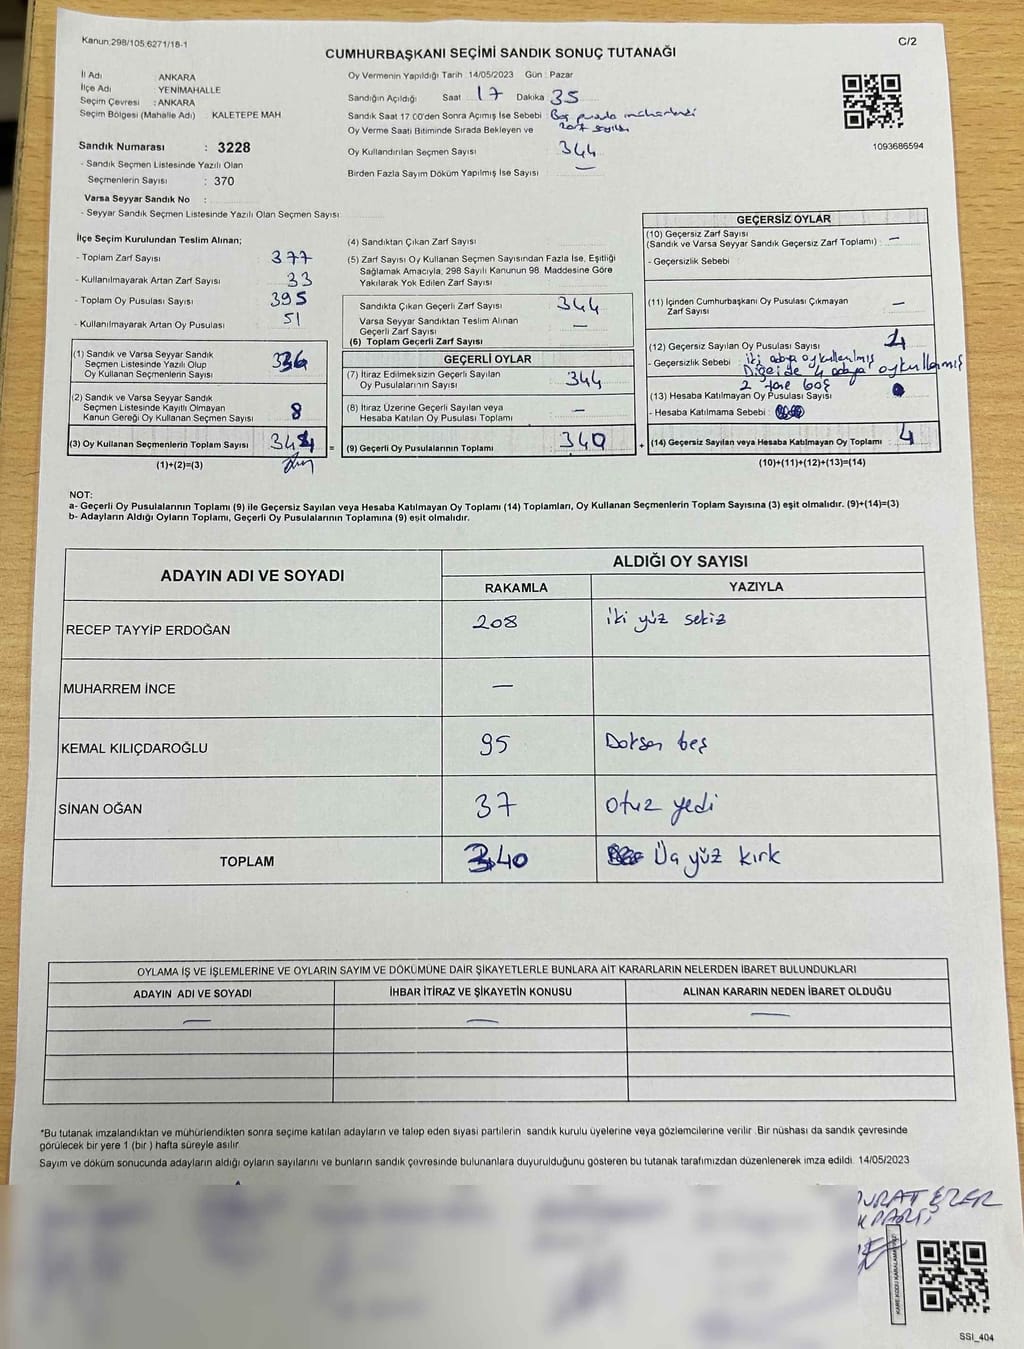 Kanun.298/105,6271/18-1
C/2
CUMHURBAŞKANI SEÇİMİ SANDIK SONUÇ TUTANAĞI
İl Adı : ANKARA
İlçe Adı : YENİMAHALLE
Seçim Çevresi : ANKARA
Seçim Bölgesi (Mahalle Adı) : KALETEPE MAH
Sandık Numarası : 3228
- Sandık Seçmen Listesinde Yazılı Olan
Seçmenlerin Sayısı : 370
Varsa Seyyar Sandık No :
- Seyyar Sandık Seçmen Listesinde Yazılı Olan Seçmen Sayısı:
Oy Vermenin Yapıldığı Tarih :14/05/2023 Gün : Pazar
Sandığın Açıldığı Saat 17 Dakika 35
Sandık Saat 17.00'den Sonra Açımış İse Sebebi
Oy Verme Saati Bitiminde Sırada Bekleyen ve
Oy Kullandırılan Seçmen Sayısı 344
Birden Fazla Sayım Döküm Yapılmış İse Sayısı —
1093686594
İlçe Seçim Kurulundan Teslim Alınan;
- Toplam Zarf Sayısı 377
- Kullanılmayarak Artan Zarf Sayısı 33
- Toplam Oy Pusulası Sayısı 395
- Kullanılmayarak Artan Oy Pusulası 51
(1) Sandık ve Varsa Seyyar Sandık
Seçmen Listesinde Yazılı Olup
Oy Kullanan Seçmenlerin Sayısı 336
(2) Sandık ve Varsa Seyyar Sandık
Seçmen Listesinde Kayıtlı Olmayan
Kanun Gereği Oy Kullanan Seçmen Sayısı 8
(3) Oy Kullanan Seçmenlerin Toplam Sayısı 344 =
(1)+(2)=(3)
(4) Sandıktan Çıkan Zarf Sayısı
(5) Zarf Sayısı Oy Kullanan Seçmen Sayısından Fazla İse, Eşitliği
Sağlamak Amacıyla, 298 Sayılı Kanunun 98. Maddesine Göre
Yakılarak Yok Edilen Zarf Sayısı
Sandıkta Çıkan Geçerli Zarf Sayısı 344
Varsa Seyyar Sandıktan Teslim Alınan
Geçerli Zarf Sayısı —
(6) Toplam Geçerli Zarf Sayısı
GEÇERLİ OYLAR
(7) İtiraz Edilmeksizin Geçerli Sayılan
Oy Pusulalarının Sayısı 344
(8) İtiraz Üzerine Geçerli Sayılan veya
Hesaba Katılan Oy Pusulası Toplamı —
(9) Geçerli Oy Pusulalarının Toplamı 340 +
GEÇERSİZ OYLAR
(10) Geçersiz Zarf Sayısı
(Sandık ve Varsa Seyyar Sandık Geçersiz Zarf Toplamı) —
- Geçersizlik Sebebi :
(11) İçinden Cumhurbaşkanı Oy Pusulası Çıkmayan
Zarf Sayısı —
(12) Geçersiz Sayılan Oy Pusulası Sayısı 4
- Geçersizlik Sebebi : iki adaya oy kullanılmış
Diğeride 4 adaya oy kullanmış
2 tane boş
(13) Hesaba Katılmayan Oy Pusulası Sayısı
- Hesaba Katılmama Sebebi :
(14) Geçersiz Sayılan veya Hesaba Katılmayan Oy Toplamı 4
(10)+(11)+(12)+(13)=(14)
NOT:
a- Geçerli Oy Pusulalarının Toplamı (9) ile Geçersiz Sayılan veya Hesaba Katılmayan Oy Toplamı (14) Toplamları, Oy Kullanan Seçmenlerin Toplam Sayısına (3) eşit olmalıdır. (9)+(14)=(3)
b- Adayların Aldığı Oyların Toplamı, Geçerli Oy Pusulalarının Toplamına (9) eşit olmalıdır.
ADAYIN ADI VE SOYADI
ALDIĞI OY SAYISI
RAKAMLA YAZIYLA
RECEP TAYYİP ERDOĞAN 208 iki yüz sekiz
MUHARREM İNCE —
KEMAL KILIÇDAROĞLU 95 Doksan beş
SİNAN OĞAN 37 otuz yedi
TOPLAM 340 Üç yüz kırk
OYLAMA İŞ VE İŞLEMLERİNE VE OYLARIN SAYIM VE DÖKÜMÜNE DAİR ŞİKAYETLERLE BUNLARA AİT KARARLARIN NELERDEN İBARET BULUNDUKLARI
ADAYIN ADI VE SOYADI İHBAR İTİRAZ VE ŞİKAYETİN KONUSU ALINAN KARARIN NEDEN İBARET OLDUĞU
— — —
*Bu tutanak imzalandıktan ve mühürlendikten sonra seçime katılan adayların ve talep eden siyasi partilerin sandık kurulu üyelerine veya gözlemcilerine verilir. Bir nüshası da sandık çevresinde
görülecek bir yere 1 (bir ) hafta süreyle asılır.
Sayım ve döküm sonucunda adayların aldığı oyların sayılarını ve bunların sandık çevresinde bulunanlara duyurulduğunu gösteren bu tutanak tarafımızdan düzenlenerek imza edildi. 14/05/2023
SSI_404